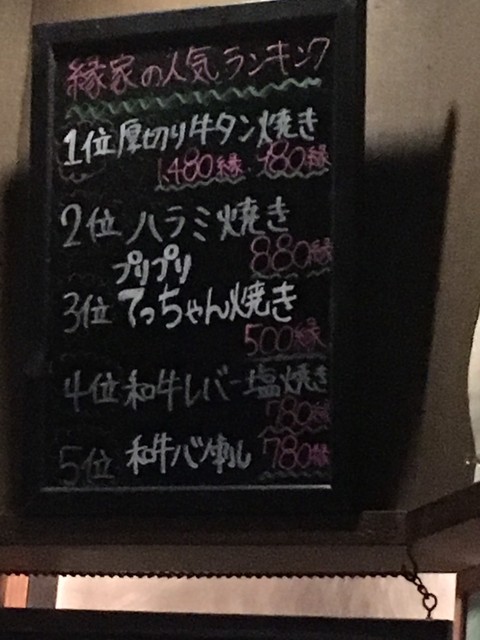 縁家の人気ランキング
1位厚切り牛タン焼き
1,480縁 980縁
2位 ハラミ焼き
880縁
プリプリ
3位 てっちゃん焼き
500縁
4位 和牛レバー塩焼き
780縁
5位 和牛ハツ刺し 780縁